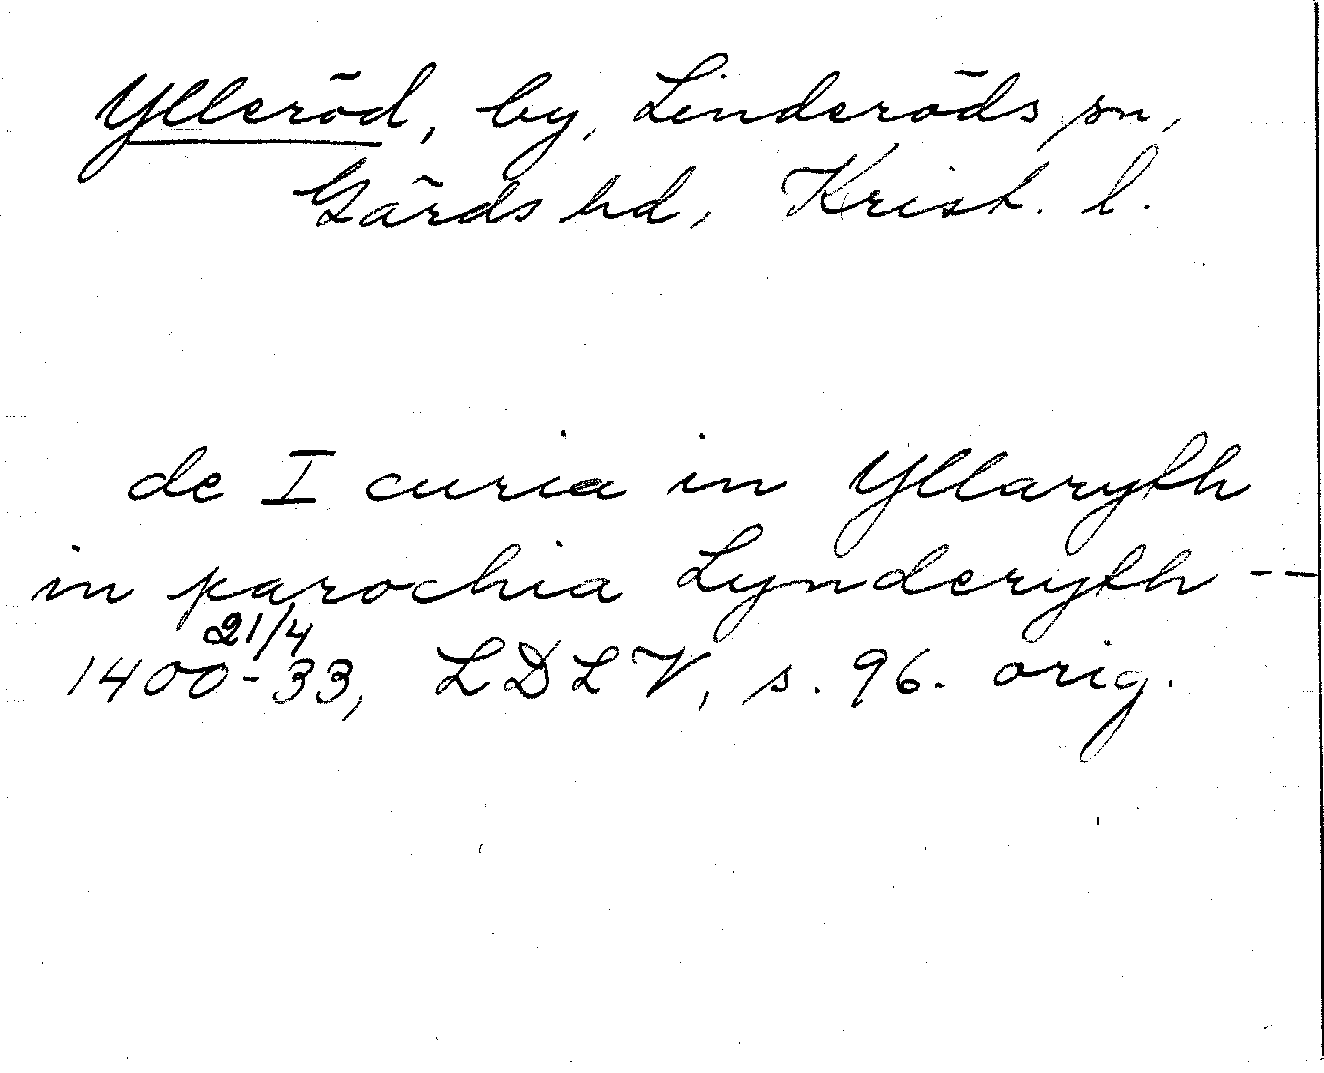 Ylleröd, by, Linderöds sn,
Gärds hd, Krist. l.
de I curia in Yllaryth
in parochia Lynderyth --
21/4
1400-33, LDLV, s. 96. orig.